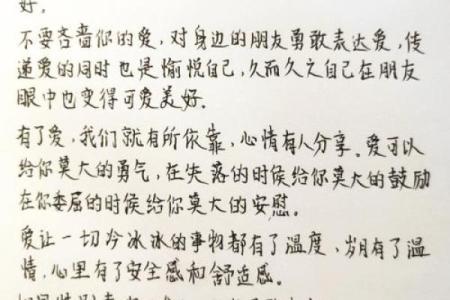 好。
不要吝啬你的爱,对身边的朋友勇敢表达爱,传
递爱的同时也是愉悦自己,久而久之自己在朋友
眼中也变得可爱美好。
有了爱,我们就有所依靠,心情有人分享。爱可以
给你莫大的勇气,在失落的时候给你莫大的鼓励
在你委屈的时候给你莫大的安慰。
爱让一切冷冰冰的事物都有了温度,岁月有了温
情,心里有了安全感和舒适感。